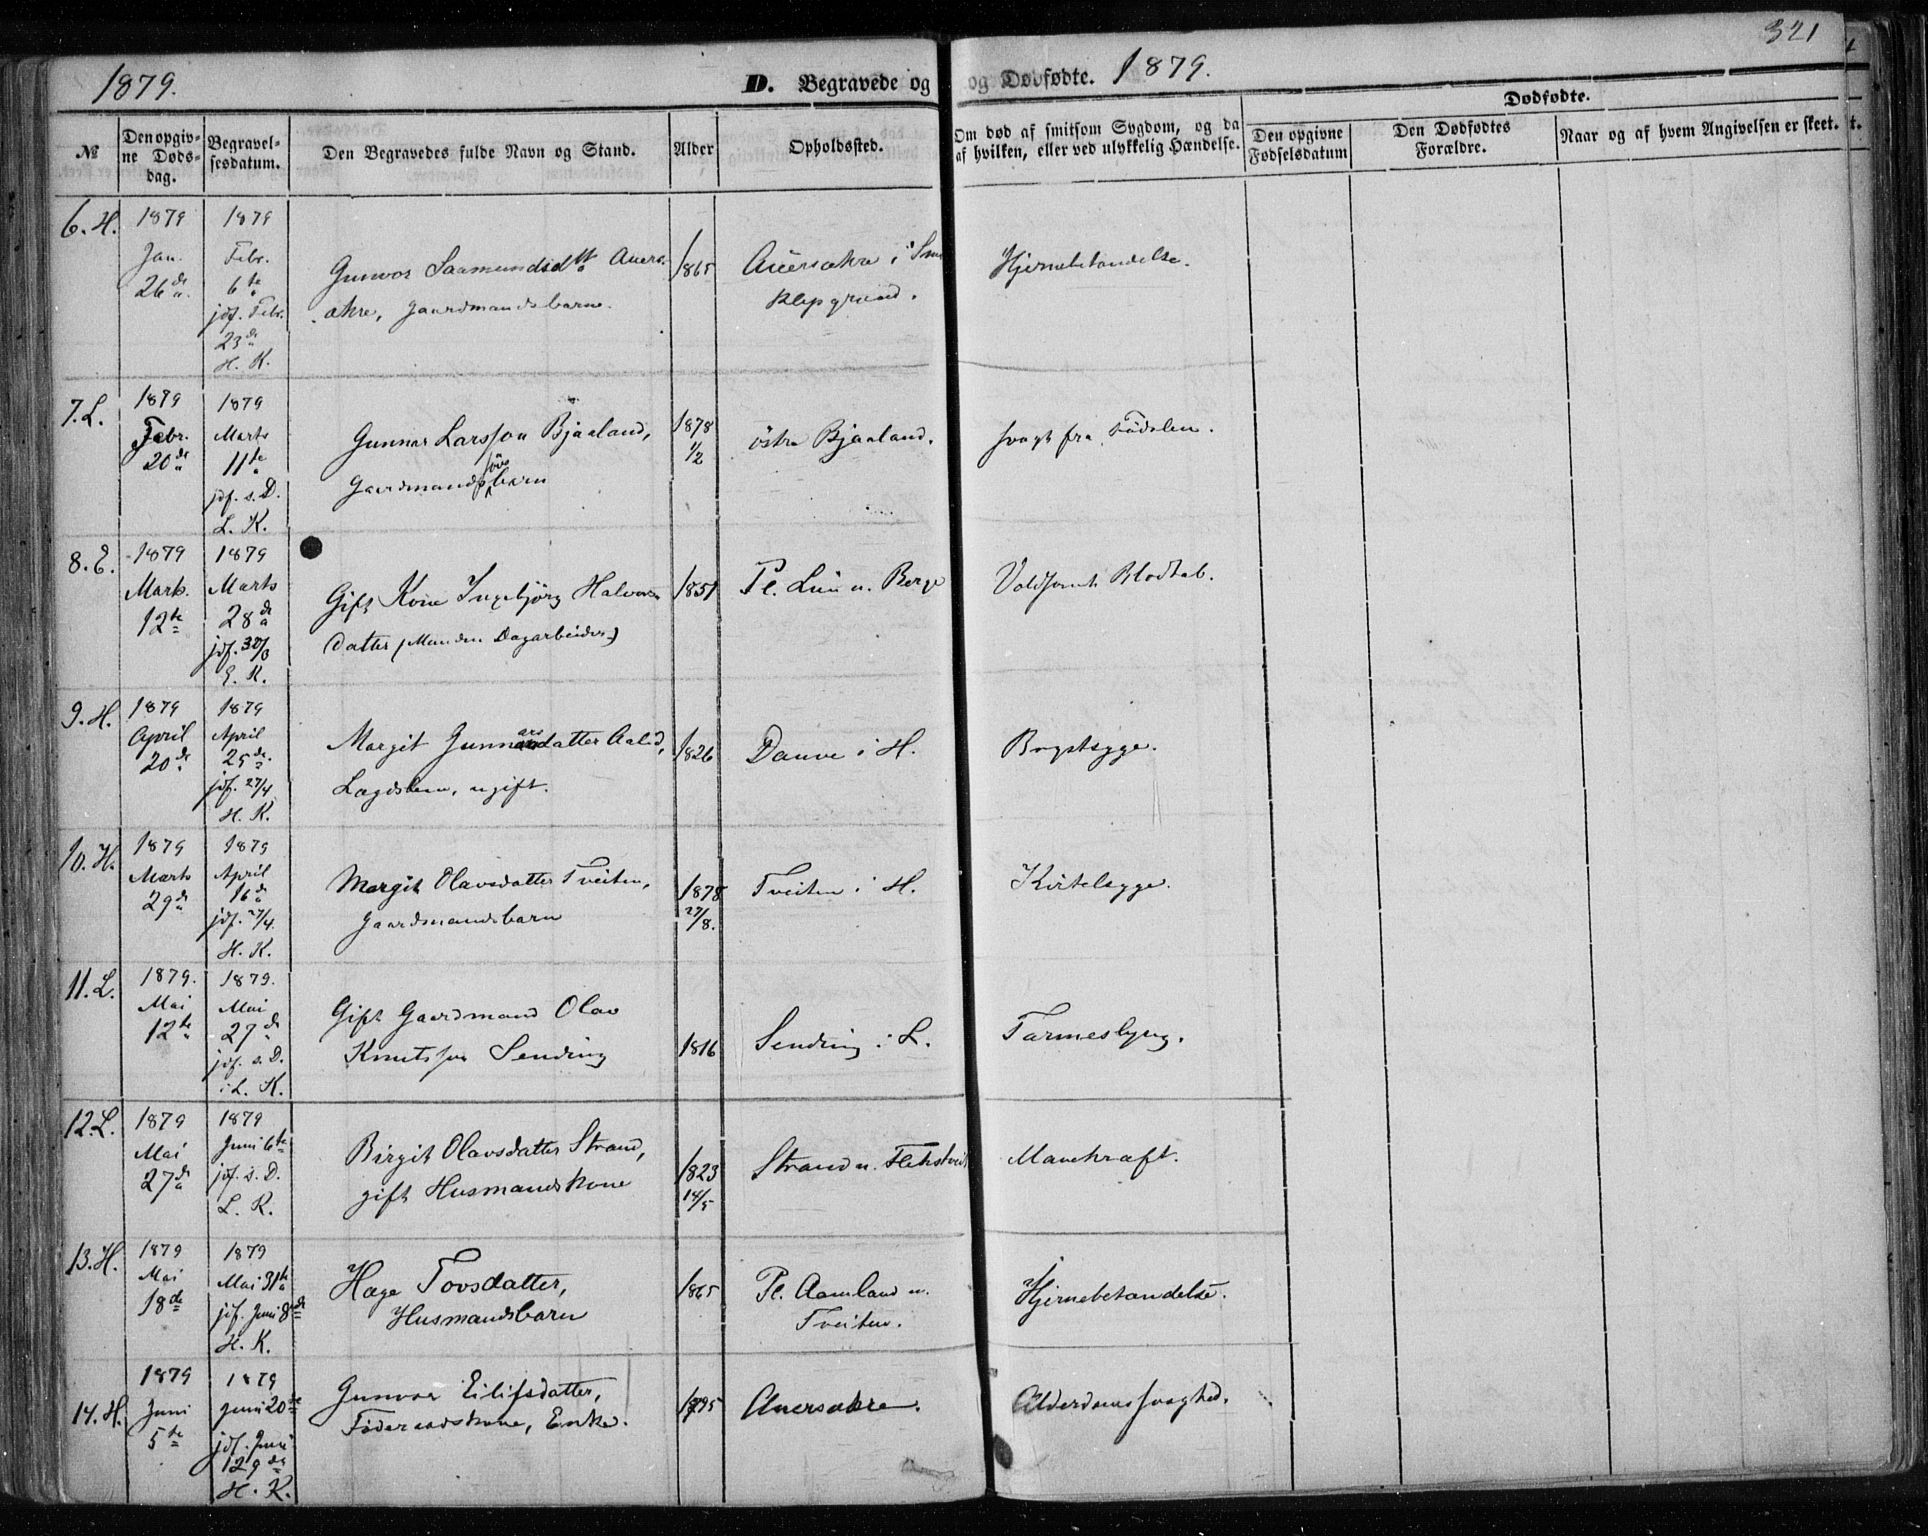 1879.
D. Begravede og
og Dødfødte. 1879.
321
№
Den opgivne Dødsdag.
Begravelsesdatum.
Den Begravedes fulde Navn og Stand.
Alder
Opholdssted.
Om død af smitsom Sygdom, og da af hvilken, eller ved ulykkelig Hændelse.
Dødfødte.
Den opgivne Fødselsdatum
Den Dødfødtes Forældre.
Naar og af hvem Angivelsen er skeet.
6. H.
1879 Jan. 26de
1879 Febr. 6te jdf. Febr. 23de H. K.
Gunvor Saamundsdtt Auers-
ækre, Gaardmandsbarn.
1865
Auersækre i
Klepgrænd.
Hjernebetændelse.
7. L.
1879 Febr. 20de
1879 Marts 11te jdf. s. D. L. K.
Gunnar Larsson Bjaaland,
Gaardmandsbarn
1878 1/2
östre Bjaaland.
svagt fra Födslen.
8. E.
1879 Marts. 12te
1879 Marts 28de jdf. 30/3 E. K.
Gift Kone Ingebjörg Halvors-
datter (Manden Dagarbeider)
1851
Pl. Lun u. Berge
Voldsomt Blodtab.
9. H.
1879 April 20de
1879 April 25de. jdf. 27/4 H. K.
Margit Gunnarsdatter Aalid,
Lægdslem, ugift.
1826
Dauve i H.
Brystsyge.
10. H.
1879 Marts 29de
1879 April 16de jdf. 27/4. H. K.
Margit Olavsdatter Tveiten,
Gaardsmandsbarn
1878 27/8.
Tveiten i H.
Kirtelsyge.
11. L.
1879. Mai 12te
1879. Mai 27de jdf. s. D. i L. K.
Gift Gaardmand Olav
Knutsson Sending
1816
Sending i L.
Tarmeslyng.
12. L.
1879 Mai 27de
1879 Juni 6te jdf. s. D. L. K.
Birgit Olavsdatter Strand,
gift Husmandskone
1823 14/5
Strand u. Flekstveit
Mavekræft.
13. H.
1879 Mai 18de
1879 Mai 31te jdf. Juni 8de H. K.
Hæge Tovsdatter,
Husmandsbarn
1865
Pl. Aamland u.
Tveiten.
Hjernebetændelse.
14. H.
1879 Juni 5te
1879 Juni 20de jdf. Juni 29de H. K.
Gunvor Eilifsdatter,
Föderaadskone, Enke.
1795
Auersækre.
Alderdomssvaghed.